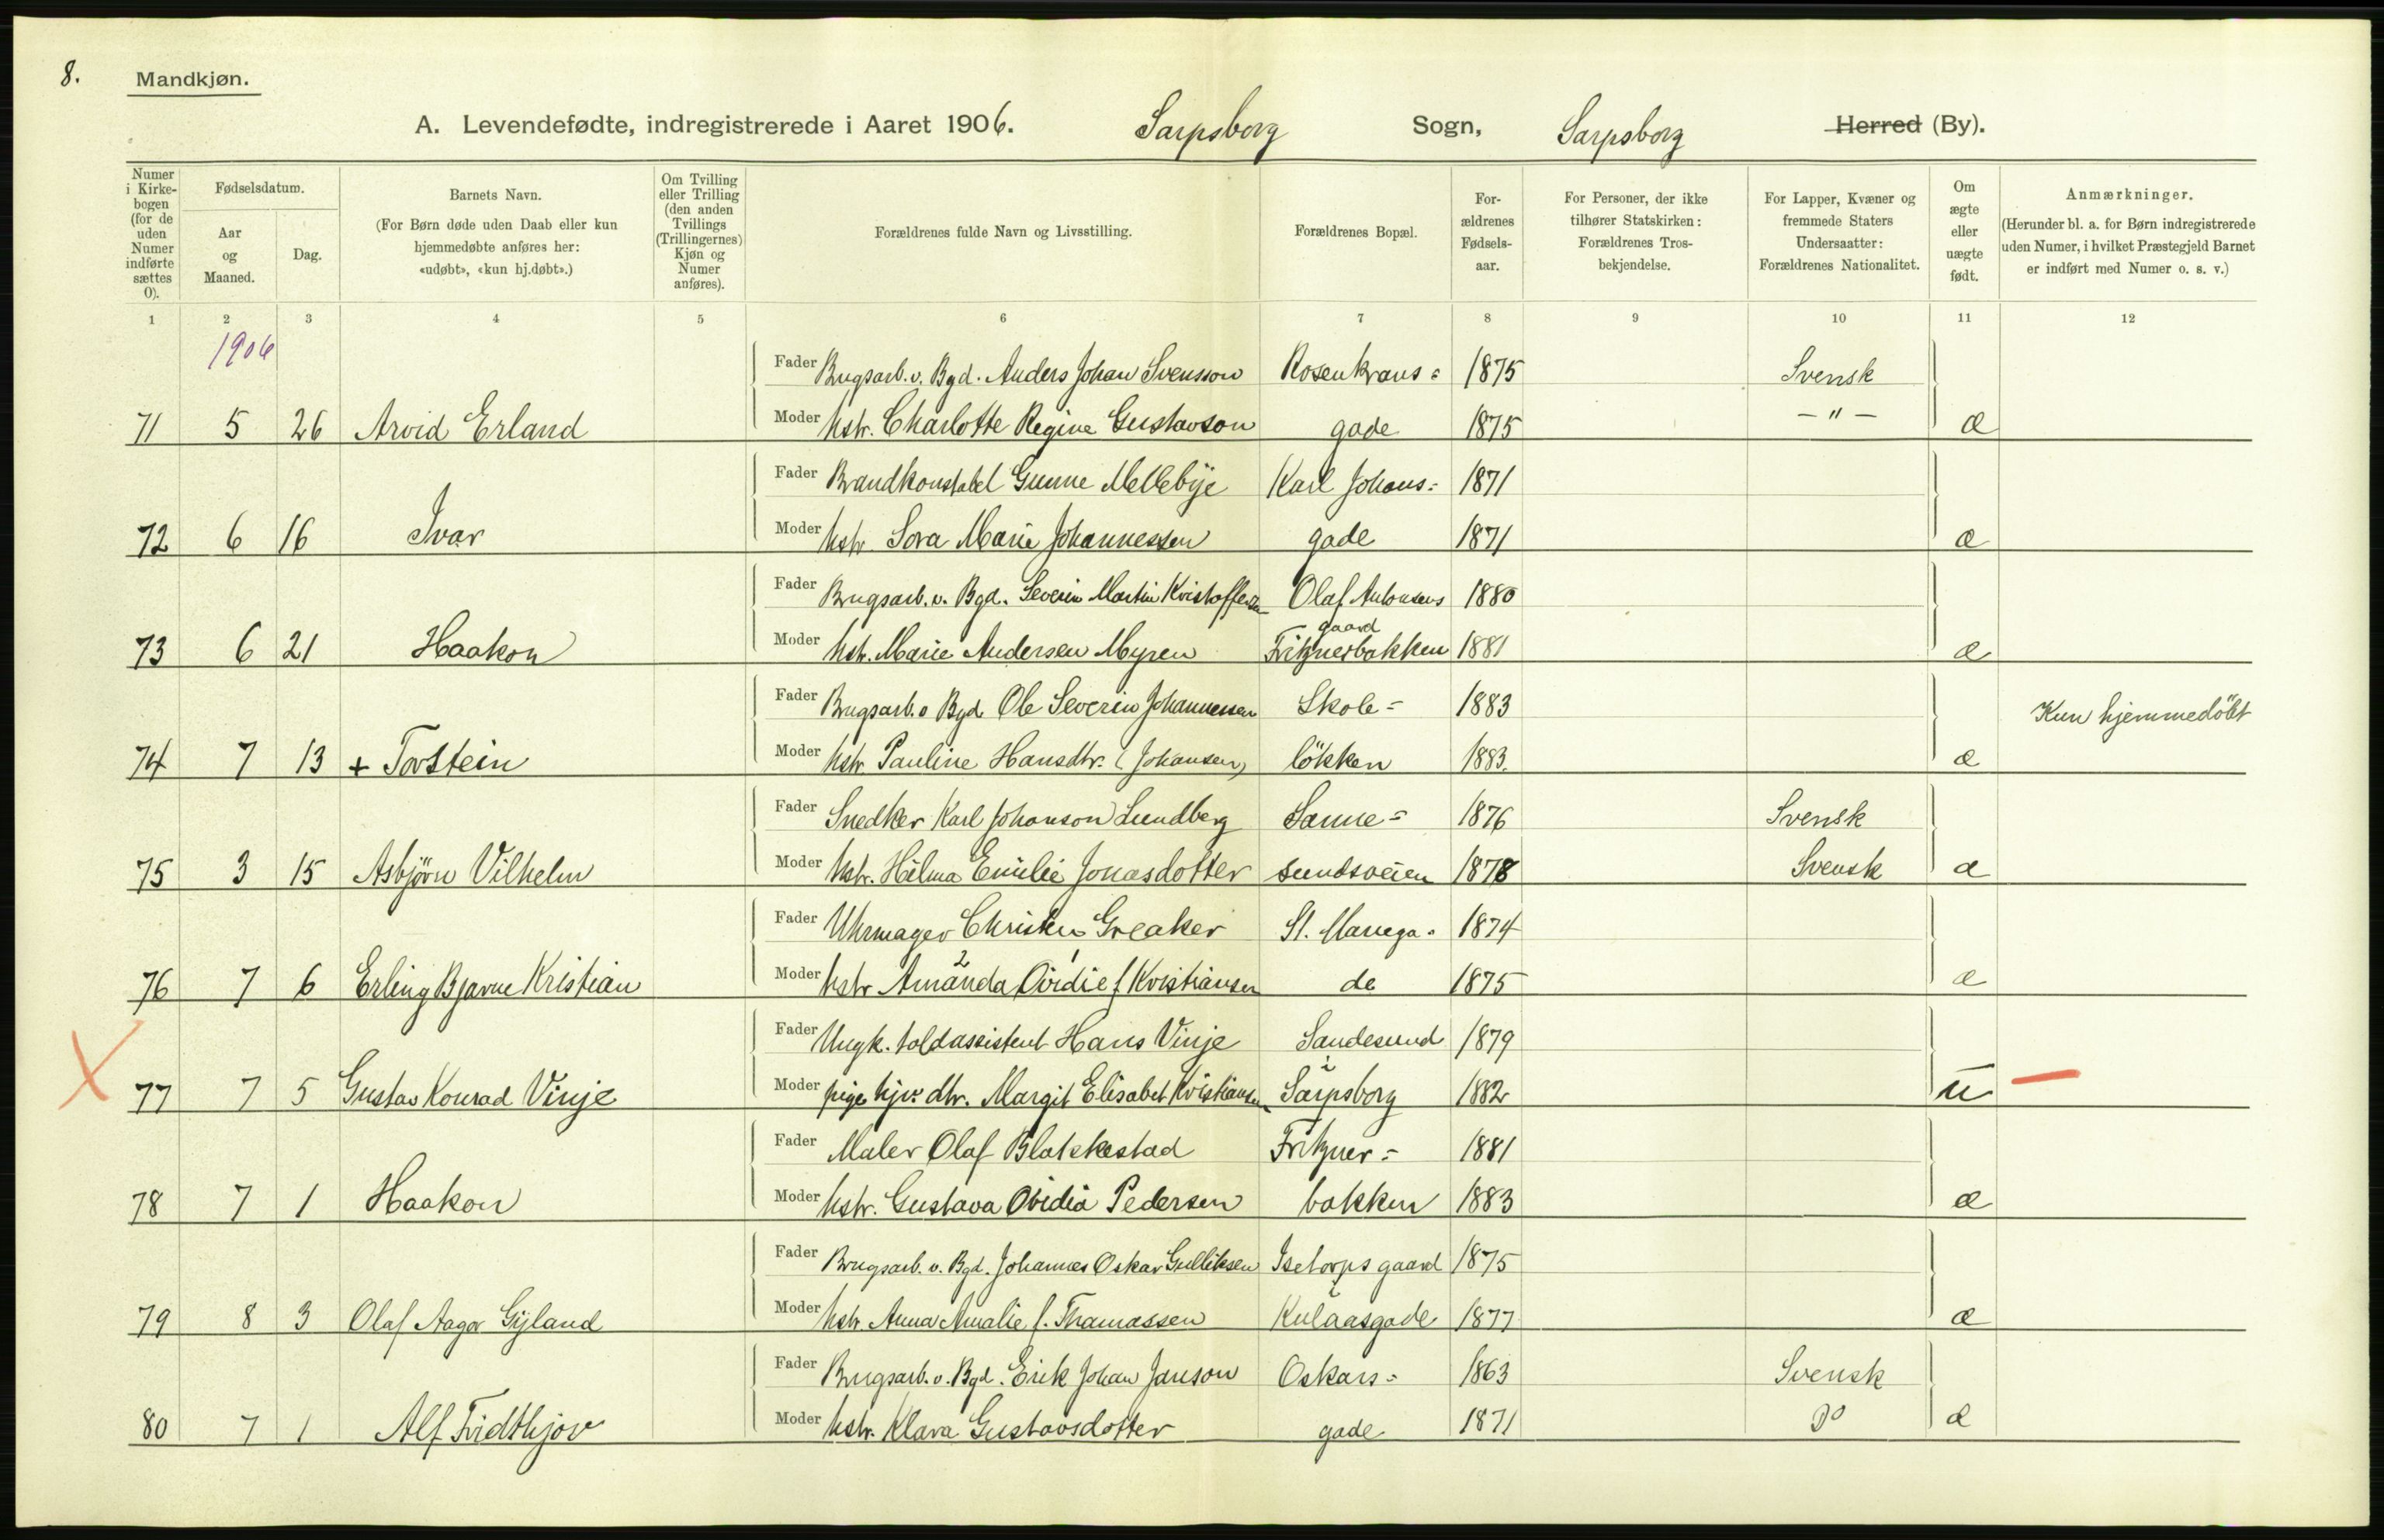 8.
Mandkjøn.
A. Levendefødte, indregistrerede i Aaret 1906. Sarpsborg Sogn, Sarpsborg Herred (By).
Numer i Kirkebogen (for de uden Numer indførte sættes 0).
Fødselsdatum.
Aar og Maaned.
Dag.
Barnets Navn.
(For Børn døde uden Daab eller kun hjemmedøbte anføres her: «udøbt», «kun hj.døbt».)
Om Tvilling eller Trilling (den anden Tvillings (Trillingernes) Kjøn og Numer anføres).
Forældrenes fulde Navn og Livsstilling.
Forældrenes Bopæl.
Forældrenes Fødselsaar.
For Personer, der ikke tilhører Statskirken: Forældrenes Trosbekjendelse.
For Lapper, Kvæner og fremmede Staters Undersaatter: Forældrenes Nationalitet.
Om ægte eller uægte født.
Anmærkninger.
(Herunder bl. a. for Børn indregistrerede uden Numer, i hvilket Præstegjeld Barnet er indført med Numer o. s. v.)
1 2 3 4 5 6 7 8 9 10 11 12
1906
Fader Brugsarb. v. Bgd. Anders Johan Svensson Rosenkrans= 1875 Svensk
71 5 26 Arvid Erland Moder hstr. Charlotte Regine Gustavson gade 1875 — " — æ
Fader Brandkonstabel Gunne Mellebye Karl Johans= 1871
72 6 16 Ivar Moder hstr. Sora Marie Johannessen gade 1871 æ
Fader Brugsarb. v. Bgd. Severin Martin Kristoffersen Olaf Antonsens 1880
gaard
73 6 21 Haakon Moder hstr. Marie Andersen Myren Fritznerbakken 1881 æ
Fader Brugsarb. v Bgd Ole Severin Johannessen Skole= 1883 Kun hjemmedöbt
74 7 13 + Torstein Moder hstr. Pauline Hansdtr. (Johansen) lökken 1883. æ
Fader Snedker Karl Johanson Lundberg Sanne= 1876 Svensk
75 3 15 Asbjörn Vilhelm Moder hstr. Hilma Emilie Jonasdotter sundsveien 1878 Svensk æ
Fader Uhrmager Christen Greaker St. Mariega= 1874
2 1
76 7 6 Erling Bjarne Kristian Moder hstr Amanda Ovidie f. Kristiansen de 1875 æ
Fader Ungk. toldassistent Hans Vinje Sandesund 1879
77 7 5 Gustav Konrad Vinje Moder pige hjv. dtr. Margit Elisabet Kristiansen Sarpsborg 1882 u
Fader Maler Olaf Blakkestad Fritzner= 1881
78 7 1 Haakon Moder hstr. Gustava Ovidia Pedersen bakken 1883 æ
Fader Brugsarb. v. Bgd. Johannes Oskar Gulliksen Isetorps gaard 1875
79 8 3 Olaf Aage Gyland Moder hstr. Anna Amalie f. Thomassen Kulaasgade 1877 æ
Fader Brugsarb. v. Bgd. Erik Johan Janson Oskars= 1863 Svensk
80 7 1 Alf Fridthjov Moder hstr. Klara Gustavsdotter gade 1871 do æ